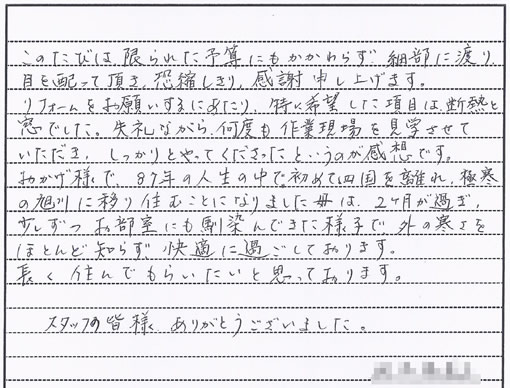 このたびは、限られた予算にもかかわらず、細部に渡り、
目を配って頂き、恐縮しきり、感謝申し上げます。
リフォームをお願いするにあたり、特に希望した項目は、断熱と
窓でした。失礼ながら、何度も作業現場を見学させて
いただき、しっかりとやってくださったと・・うのが感想です。
おかげ様で、87年の人生の中で、初めて四国を離れ、極寒
の旭川に移り住むことになりました母は、2ヶ月が過ぎ、
少しずつお部室にも馴染んできた様子で、外の寒さを
ほとんど知らず、快適に過ごしております。
長く住んでもらいたいと思っております。
スタッフの皆様、ありがとうございました。